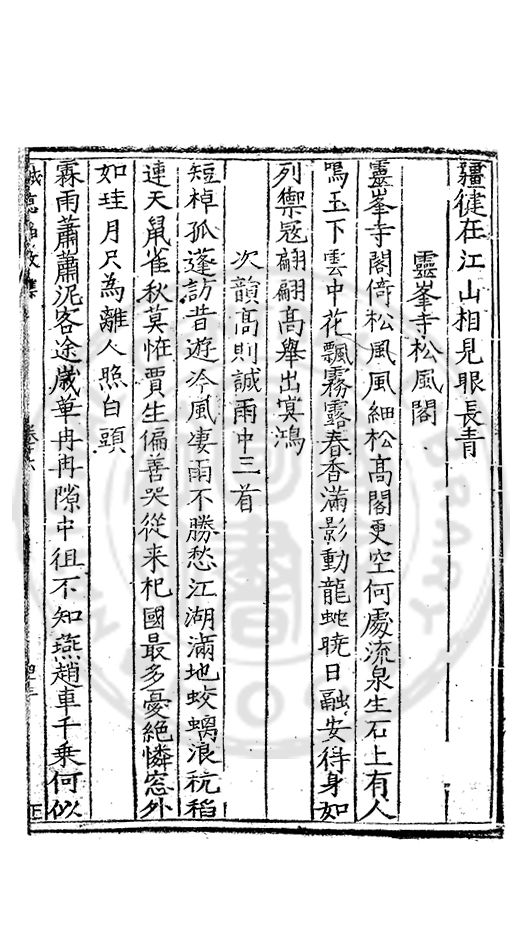 疆健在江山相見眼長青
靈峯寺松風閣
靈峯寺閣倚松風風細松髙閣更空何處流泉生石上有人
鳴玉下雲中花飄霧露春香滿影動龍虵曉日融安得身如
列禦冦翩翩髙舉出㝠鴻
次韻髙則誠雨中三首
短棹孤蓬訪昔遊冷風凄雨不勝愁江湖滿地蛟螭浪秔稻
連天䑕雀秋莫恠賈生偏善哭從来杞國最多憂絶憐窓外
如珪月只為離人照白頭
霖雨蕭蕭泥客途嵗華冉冉隙中徂不知燕趙車千乗何似
誠意伯文集